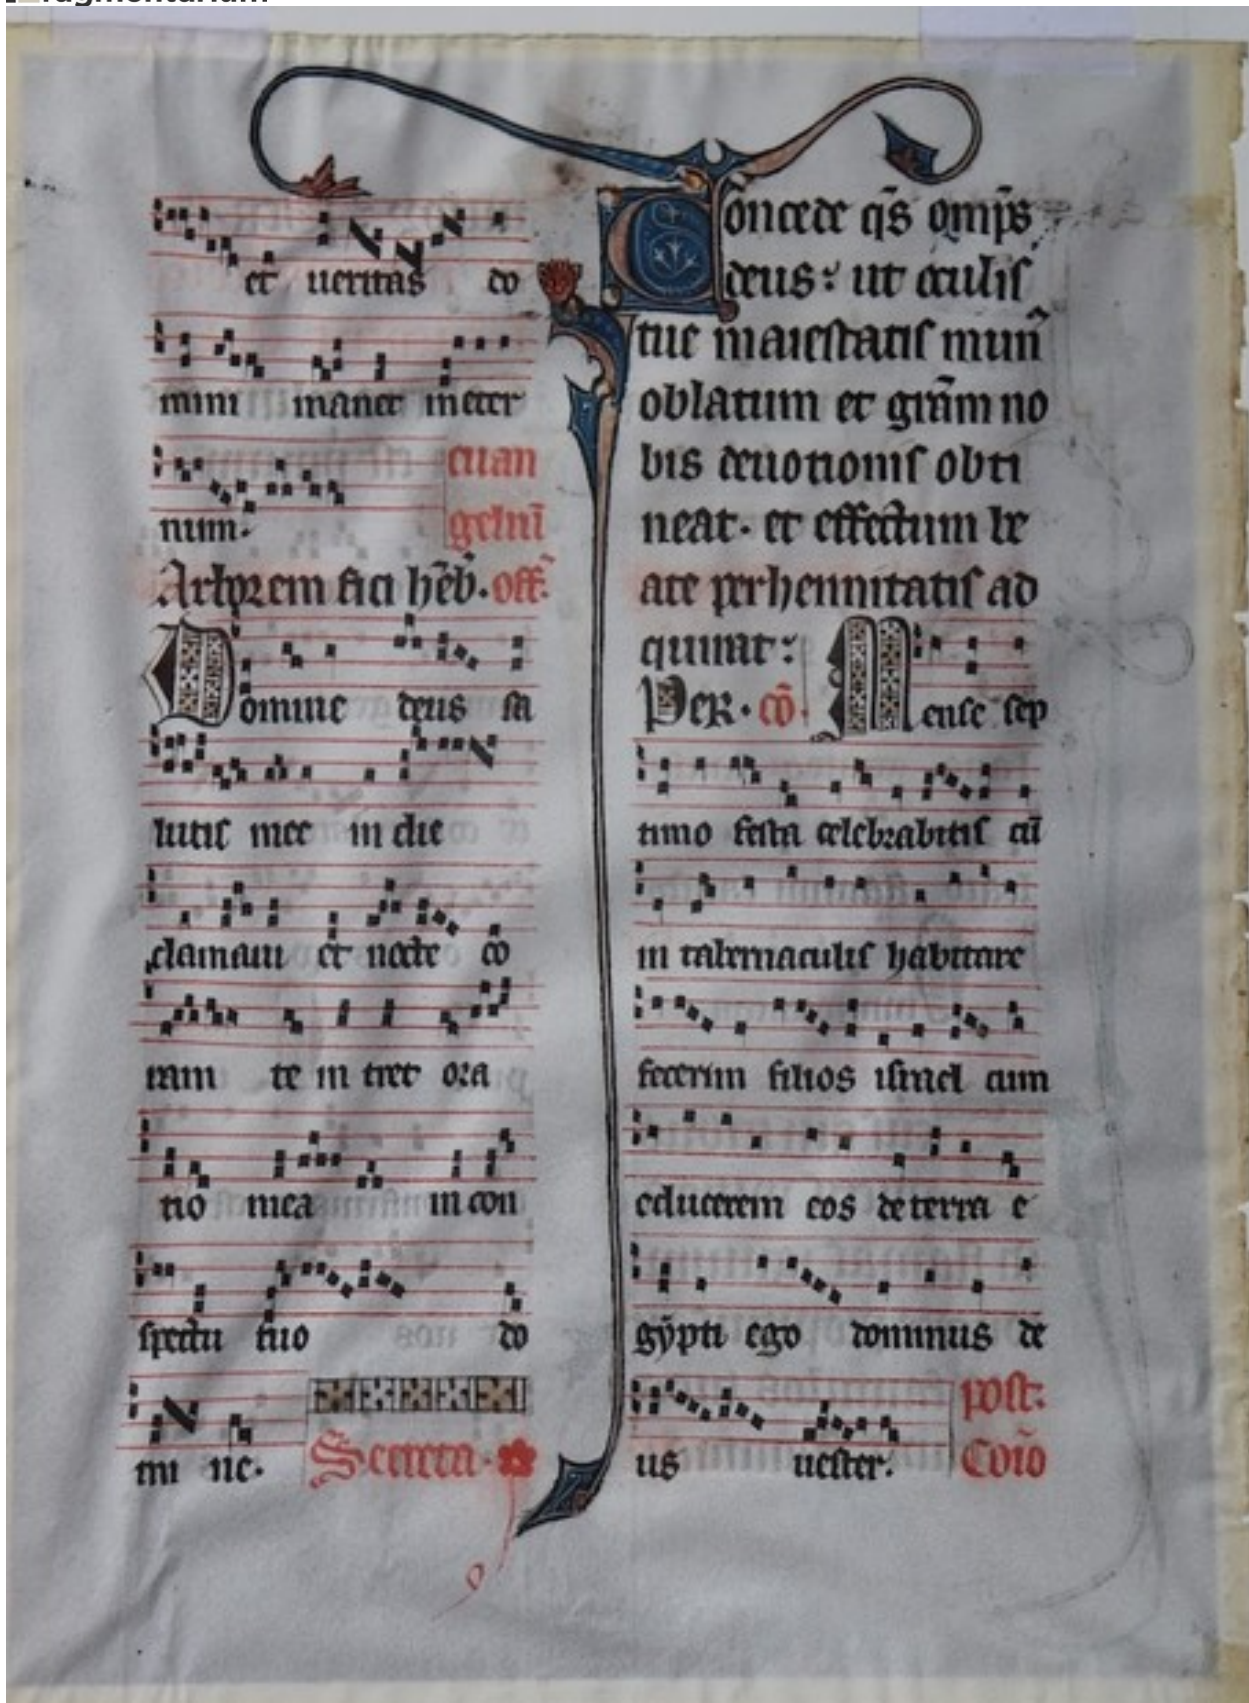 ragmentarium
et ueritas do
mini manet ineter
num.
euan
geliū
Arborem fici hēb. off.
Domine deus sa
lutis mee in die
clamaui et nocte co
ram te in tret ora
tio mea in con
spectu tuo do
mi ne.
Secreta.
Concede qs̄ omp̄s
deus: ut oculis
tue maiestatis mun̄
oblatum et gr̄am no
bis deuotionis obti
neat. et effectum be
ate perhennitatis ad
quirat:
Per. cō. Mense sep
timo festa celebrabitis cū
in tabernaculis habitare
fecerim filios israel cum
educerem eos de terra e
gẏpti ego dominus de
us uester.
post:
Coīo